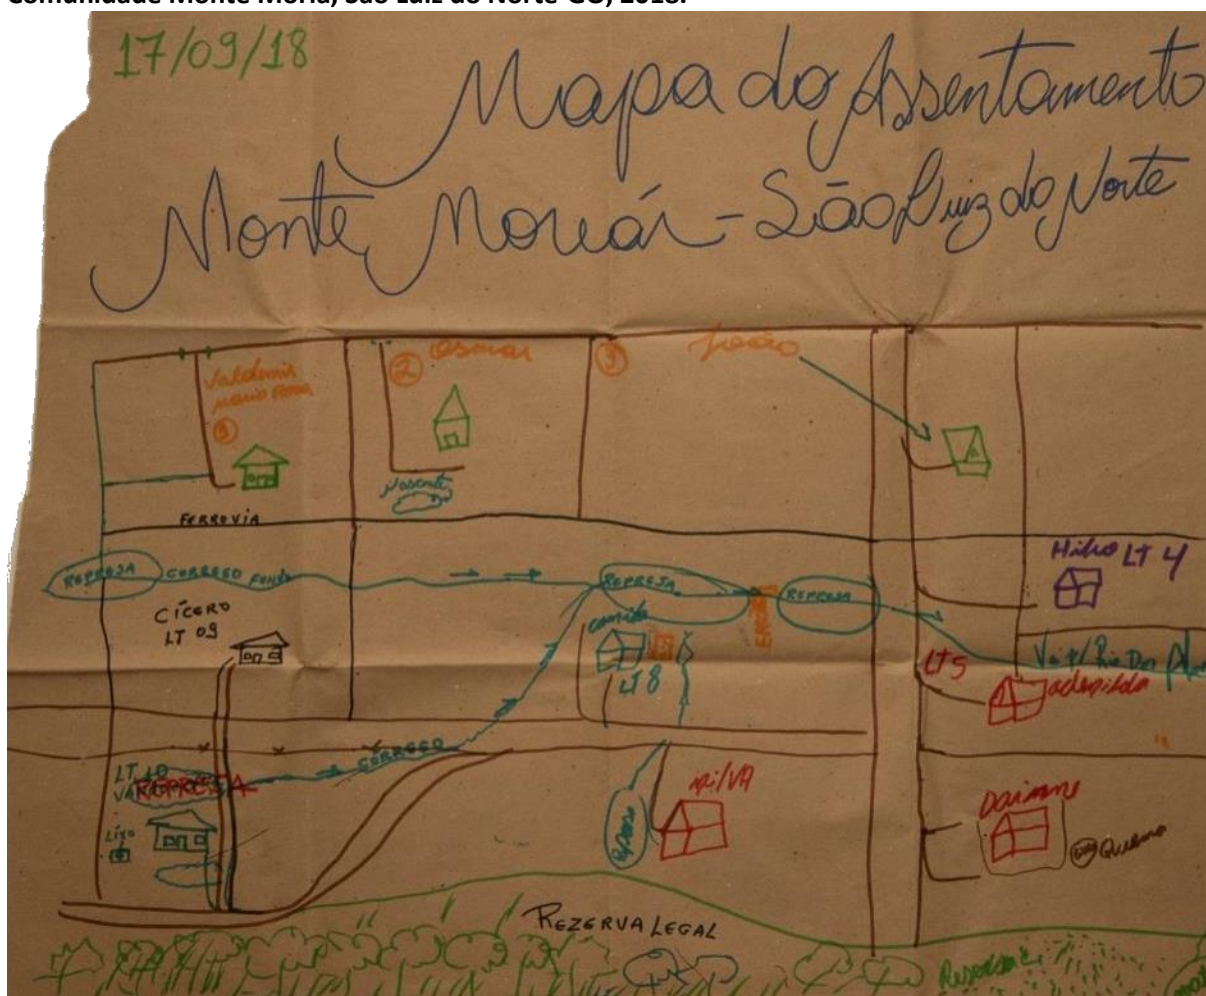 Comunidade Monte Moriá, São Luiz do Norte-GO, 2018.
17/09/18
Mapa do Assentamento
Monte Moriá - São Luiz do Norte
Valdemir
1
2 Osmar
3
João
Nascente
FERROVIA
REPRESA
CÓRREGO FUNDO
REPRESA
REPRESA
CÍCERO
LT 09
LT 8
LT 4
LT 5
Vai p/ Rio Das
CÓRREGO
LT 10
REPRESA
Lixo
NilVA
Daiane
Queima
REZERVA LEGAL